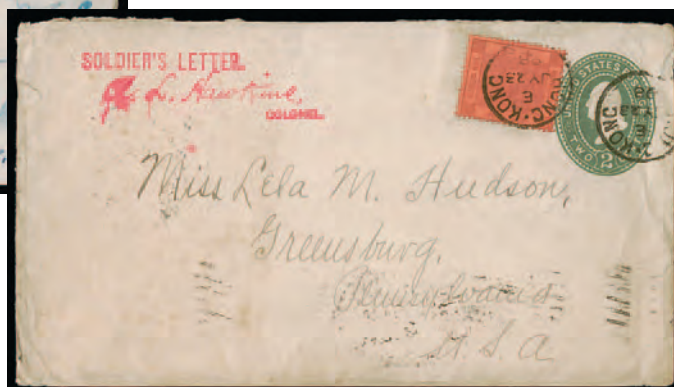 SOLDIER'S LETTER.
L. Hawkins,
COLONEL.
HONG-KONG
E
JY 23
98
UNITED STATES
TWO
2
HONG-KONG
E
98
Miss Lela M. Hudson,
Greensburg,
Pennsylvania
U. S. A